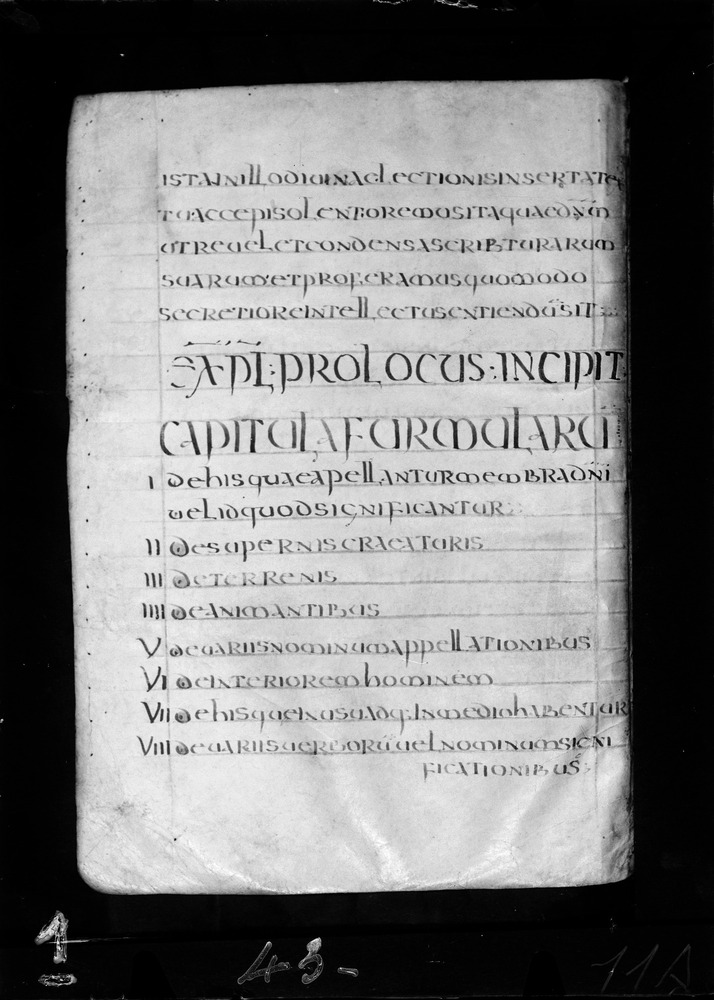 ISTAINILLODIUINAELECTIONISINSERTATE
TUACCEPISOLENTOREMUSITAQUAEDNM
UTREUELETCONDENSASCRIBTURARUM
SUARUMETPROFERAMUSQUOMODO
SECRETIOREINTELLECTUSENTIENDUSIT
EXPLI·PROLOCUS·INCIPIT
CAPITULAFURMULARU
I DEHISQUAEAPELLANTURMEMBRADNI
UELIDQUODSIGNIFICANTUR
II DESUPERNISCRAEATURIS
III DETERRENIS
IIII DEANIMANTIBUS
V DEUARIISNOMINUMAPPELLATIONIBUS
VI DEINTERIOREMHOMINEM
VII DEHISQUEINUSUADQ·INMEDIOHABENTUR
VIII DEUARIISUERBORŪUELNOMINUMSIGNI
FICATIONIBUS
1
43-
11A